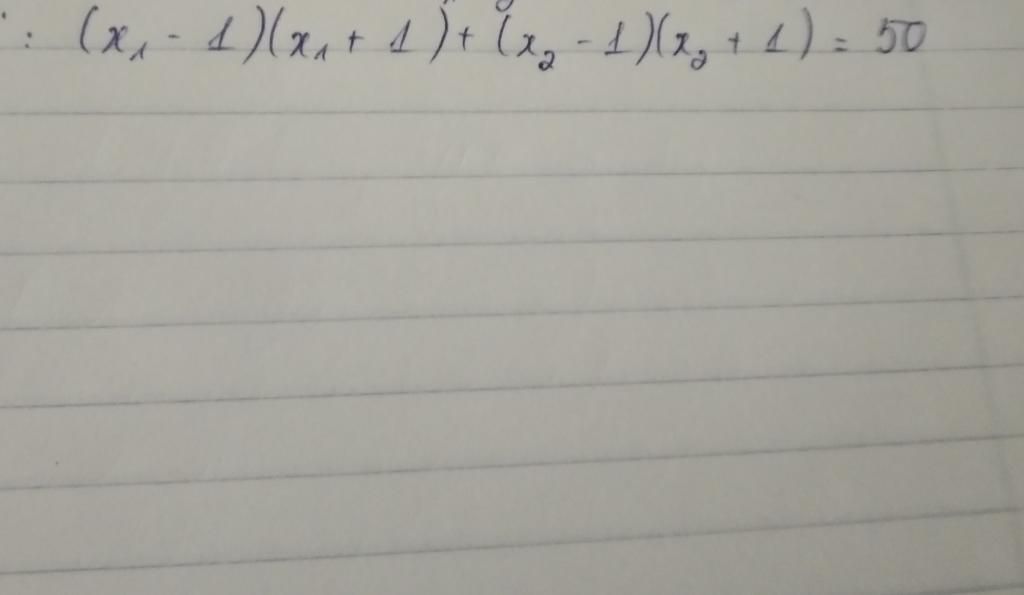 : (x₁ - 1)(x₁ + 1) + (x₂ - 1)(x₂ + 1) = 50